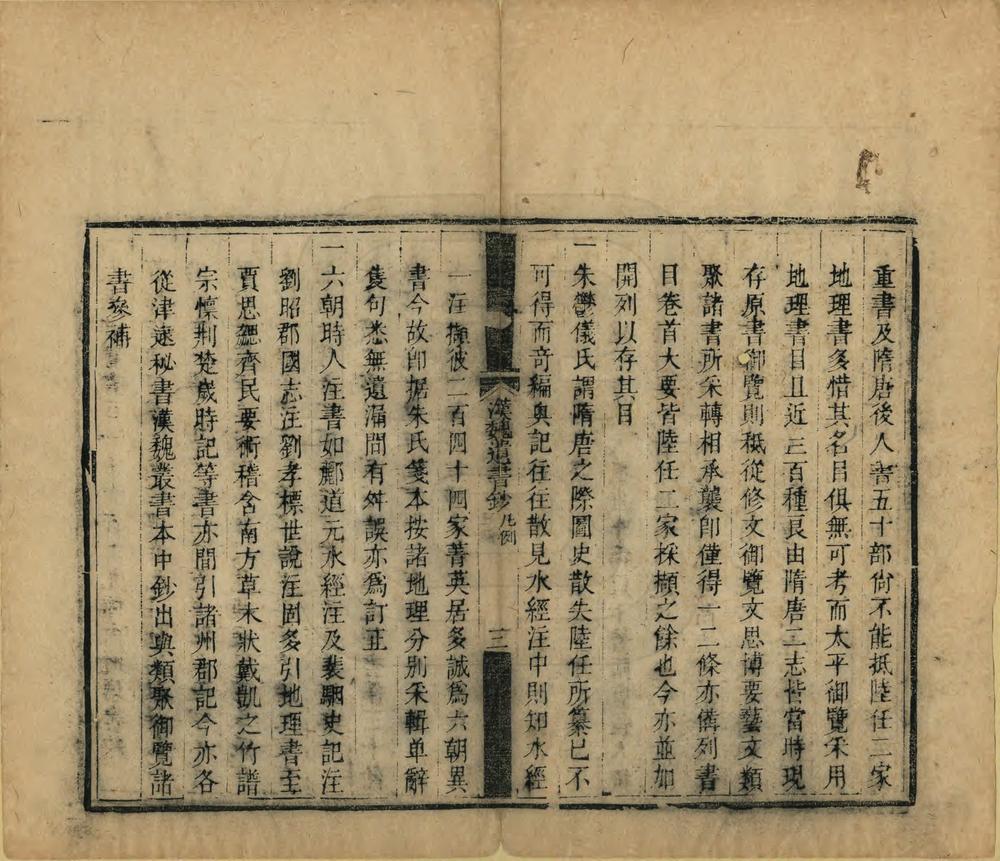 重書及隋唐後人書五十部尙不能抵陸任二家
地理書多惜其名目俱無可考而太平御覽采用
地理書目且近三百種良由隋唐二志皆當時現
存原書御覽則秪從修文御覽文思博要藝文類
聚諸書所采轉相承襲卽僅得一二條亦僃列書
目卷首大要皆陸任二家採擷之餘也今亦並加
開列以存其目
一朱鬱儀氏謂隋唐之際圖史散失陸任所纂已不
可得而奇編與記往往散見水經注中則知水經
漢魏遺書鈔 凡例 三
一注擷彼二百四十四家菁英居多誠爲六朝異
書今故卽据朱氏箋本按諸地理分別采輯单辭
隻句悉無遺漏間有舛誤亦爲訂正
一六朝時人注書如酈道元水經注及裴駰史記注
劉昭郡國志注劉孝標世說注固多引地理書至
賈思勰齊民要術稽含南方草木狀戴凱之竹譜
宗懍荆楚歲時記等書亦間引諸州郡記今亦各
從津逮秘書漢魏叢書本中鈔出與類聚御覽諸
書參補